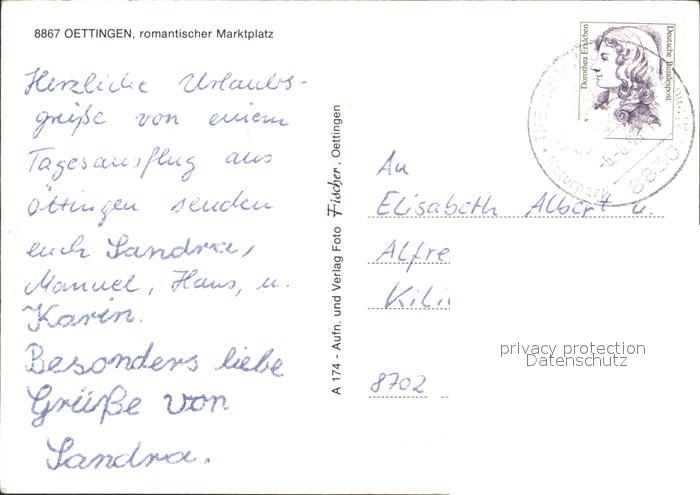 8867 OETTINGEN, romantischer Marktplatz
Herzliche Urlaubs-
grüße von einem
Tagesausflug aus
Öttingen senden
euch Sandra,
Manuel, Hans, u.
Karin.
Besonders liebe
Grüße von
Sandra.
A 174 - Aufn. und Verlag Foto Fischer, Oettingen
Dorothea Erxleben
Deutsche Bundespost
8830
Naturpark
An
Elisabeth Albert u.
Alfre
Kili
8702
privacy protection
Datenschutz